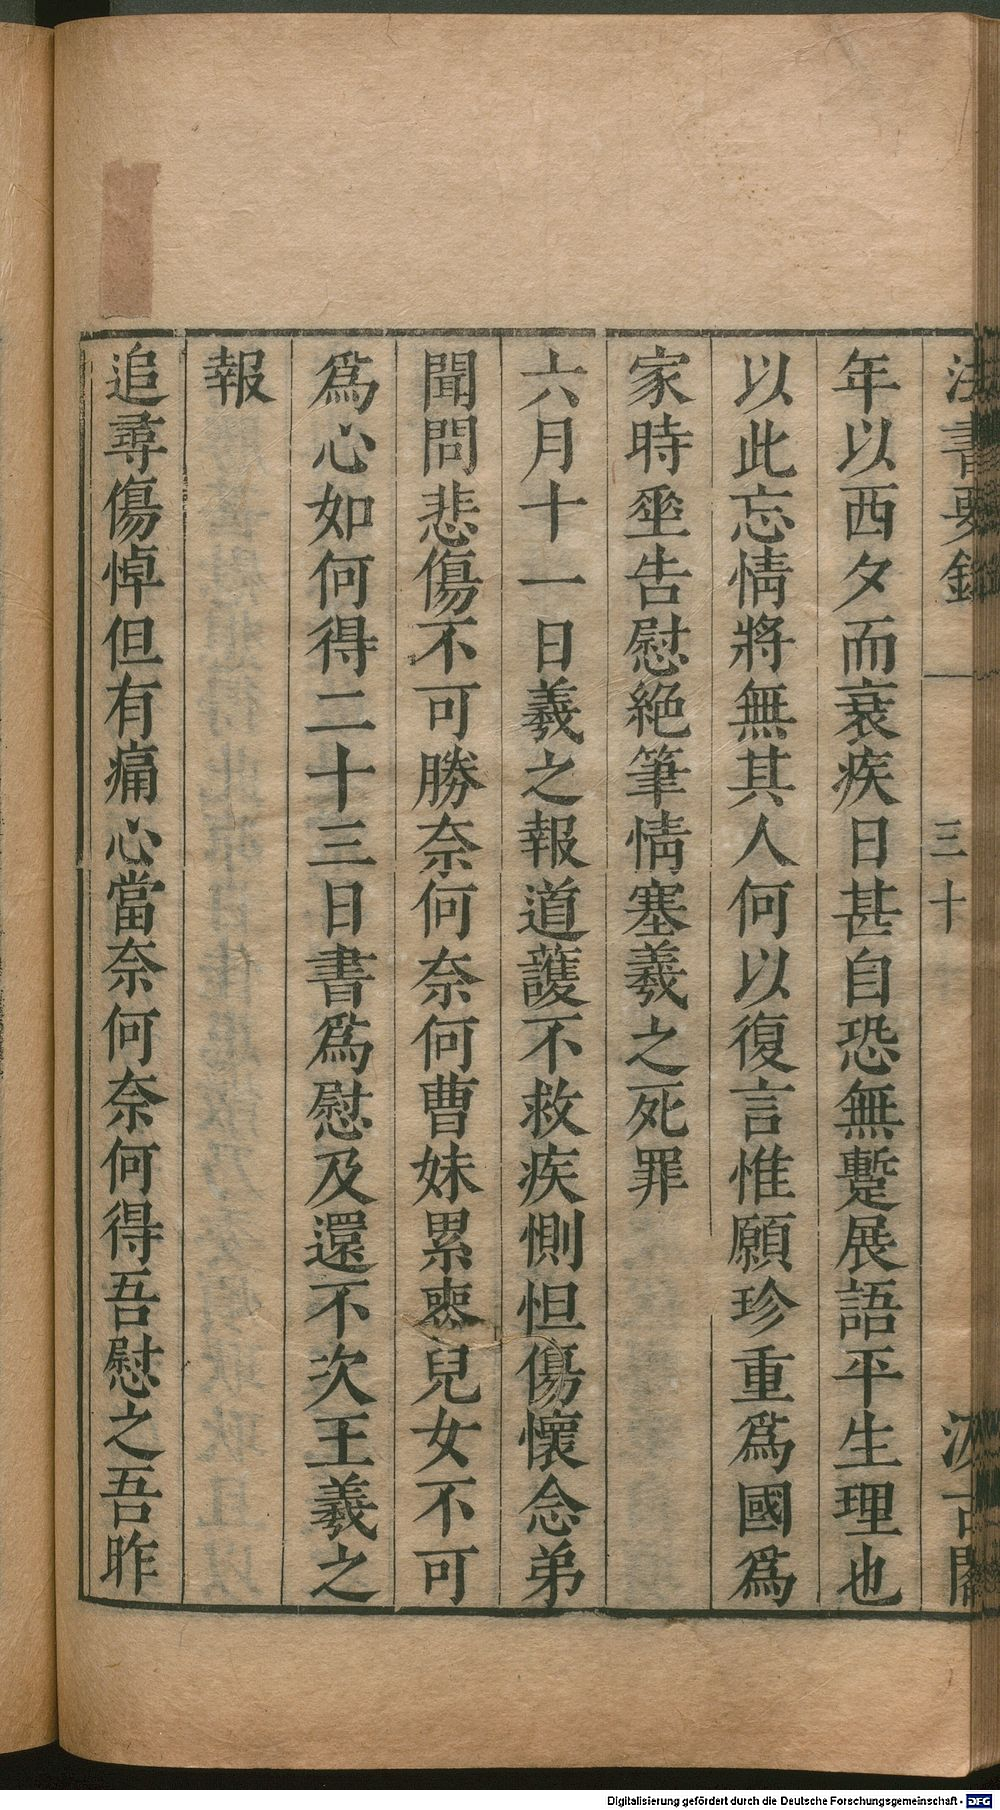 法書要錄 三十 汲古閣
年以西夕而衰疾日甚自恐無蹔展語平生理也
以此忘情將無其人何以復言惟願珍重爲國爲
家時坙告慰絶筆情塞羲之死罪
六月十一日羲之報道護不救疾惻怛傷懷念弟
聞問悲傷不可勝奈何奈何曹妹累喪兒女不可
爲心如何得二十三日書爲慰及還不次王羲之
報
追尋傷悼但有痛心當奈何奈何得吾慰之吾昨
Digitalisierung gefördert durch die Deutsche Forschungsgemeinschaft - DFG